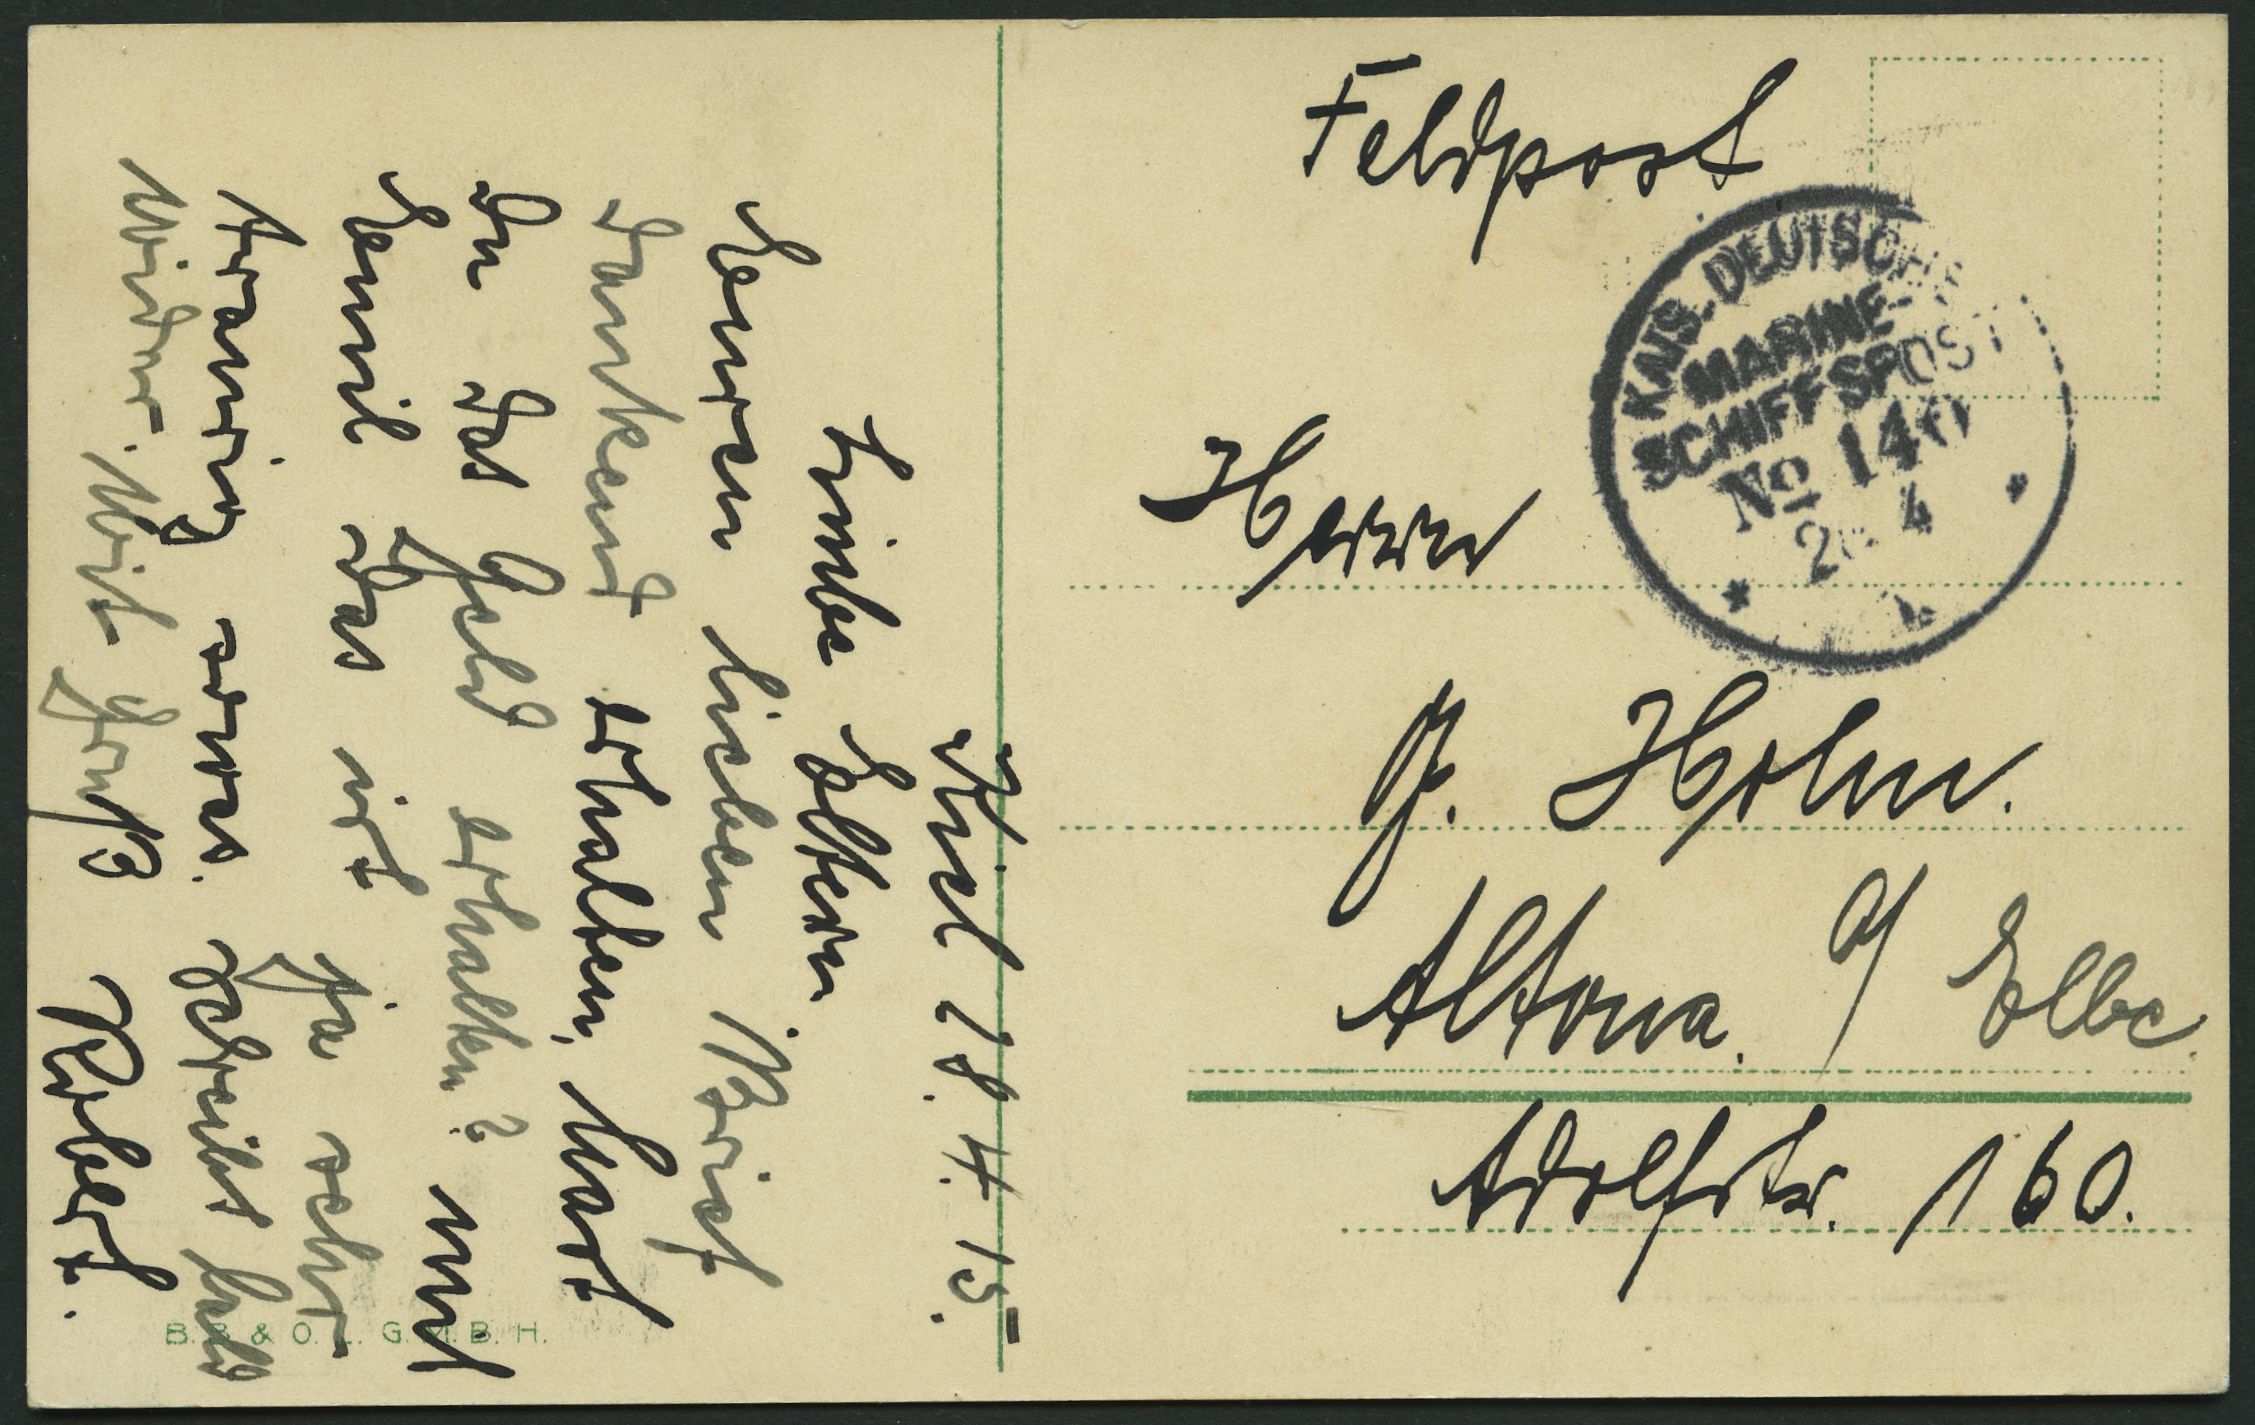 Kiel 28. 4. 15.
Liebe Eltern
Euren lieben Brief
dankend erhalten, hast
Du das Geld erhalten? mit
Emil das ist ja sehr
traurig. schreibt bald
wieder. Mit Gruß Robert.
Feldpost
KAIS. DEUTSCHE
MARINE-
SCHIFFSPOST
No 140
4
Herrn
J. Holm.
Altona. a/ Elbe.
Adolfstr. 160.
B. & O. L. G. M. B. H.